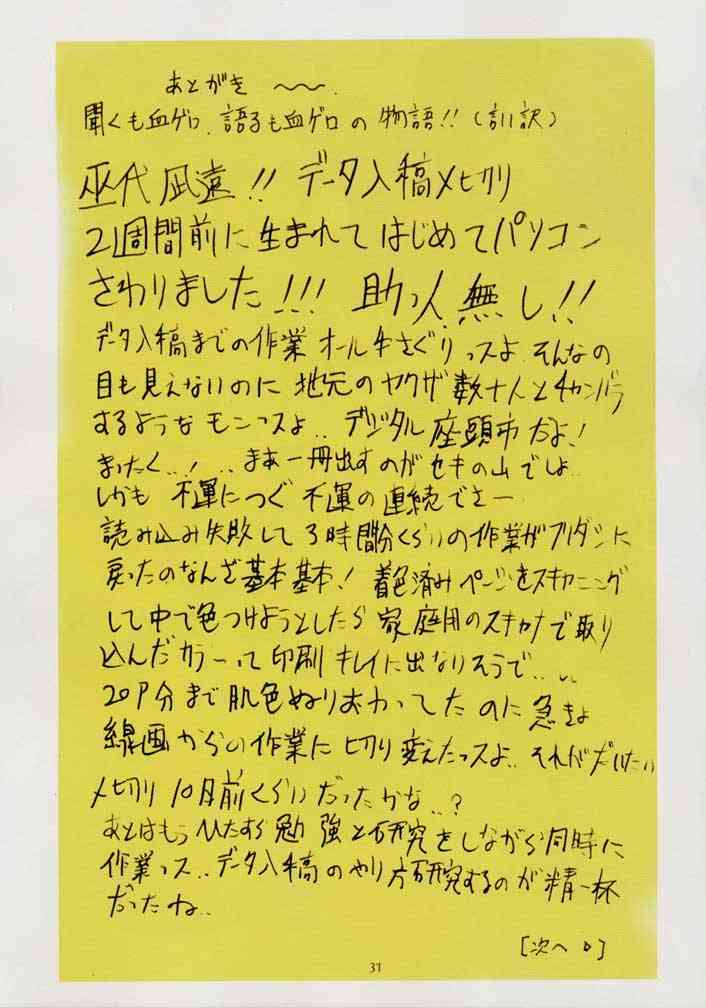 あとがき 〜〜.
聞くも血ゲロ、語るも血ゲロの物語!!(言い訳)
巫代凪遠!! データ入稿〆切り
2週間前に生まれてはじめてパソコン
さわりました!!! 助っ人無し!!
データ入稿までの作業オール手さぐりっスよ、そんなの
目も見えないのに地元のヤクザ数十人とチャンバラ
するようなモンっスよ.. デジタル座頭市だよ!
まったく..! ..まあ一冊出すのがセキの山でしょ..
しかも不運につぐ不運の連続でさー
読み込み失敗して3時間分くらいの作業がフリダシに
戻ったのなんざ基本基本! 着色済みページをスキャニング
して中で色つけようとしたら家庭用のスキャナで取り
込んだカラーって印刷キレイに出ないそうで...
20P分まで肌色ぬりおわってたのに急きょ
線画からの作業に切り変えたっスよ.. それがだいたい
〆切り10日前くらいだったかな..?
あとはもうひたすら勉強と研究をしながら同時に
作業っス.. データ入稿のやり方研究するのが精一杯
だったね..
[次へ▷]
31